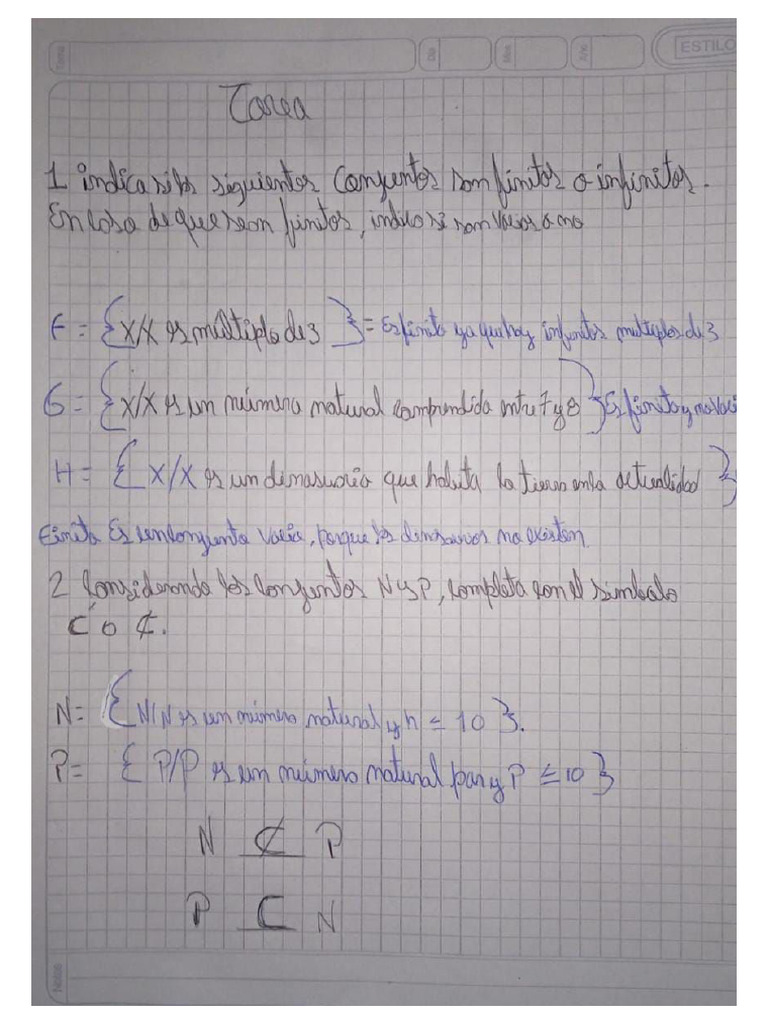 Tema
Día
Mes
Año
ESTILO
Tarea
1 indica si los siguientes Conjuntos son finitos o infinitos.
En caso de que sean finitos, indica si son vacios o no
F = {X/X es múltiplo de 3} = Es finito ya que hay infinitos multiplos de 3
G = {X/X es un número natural comprendido entre 7 y 8} Es finito y no vaci
H = {X/X es un dinosaurio que habita la tierra en la actualidad}
Finito Es un conjunto vacio, porque los dinosaurios no existen.
2 Considerando los conjuntos N y P, completa con el simbolo
⊂ o ⊄.
N = {N/N es un número natural y n ≤ 10}.
P = {P/P es un número natural par y P ≤ 10}
N ⊄ P
P ⊂ N
Notas